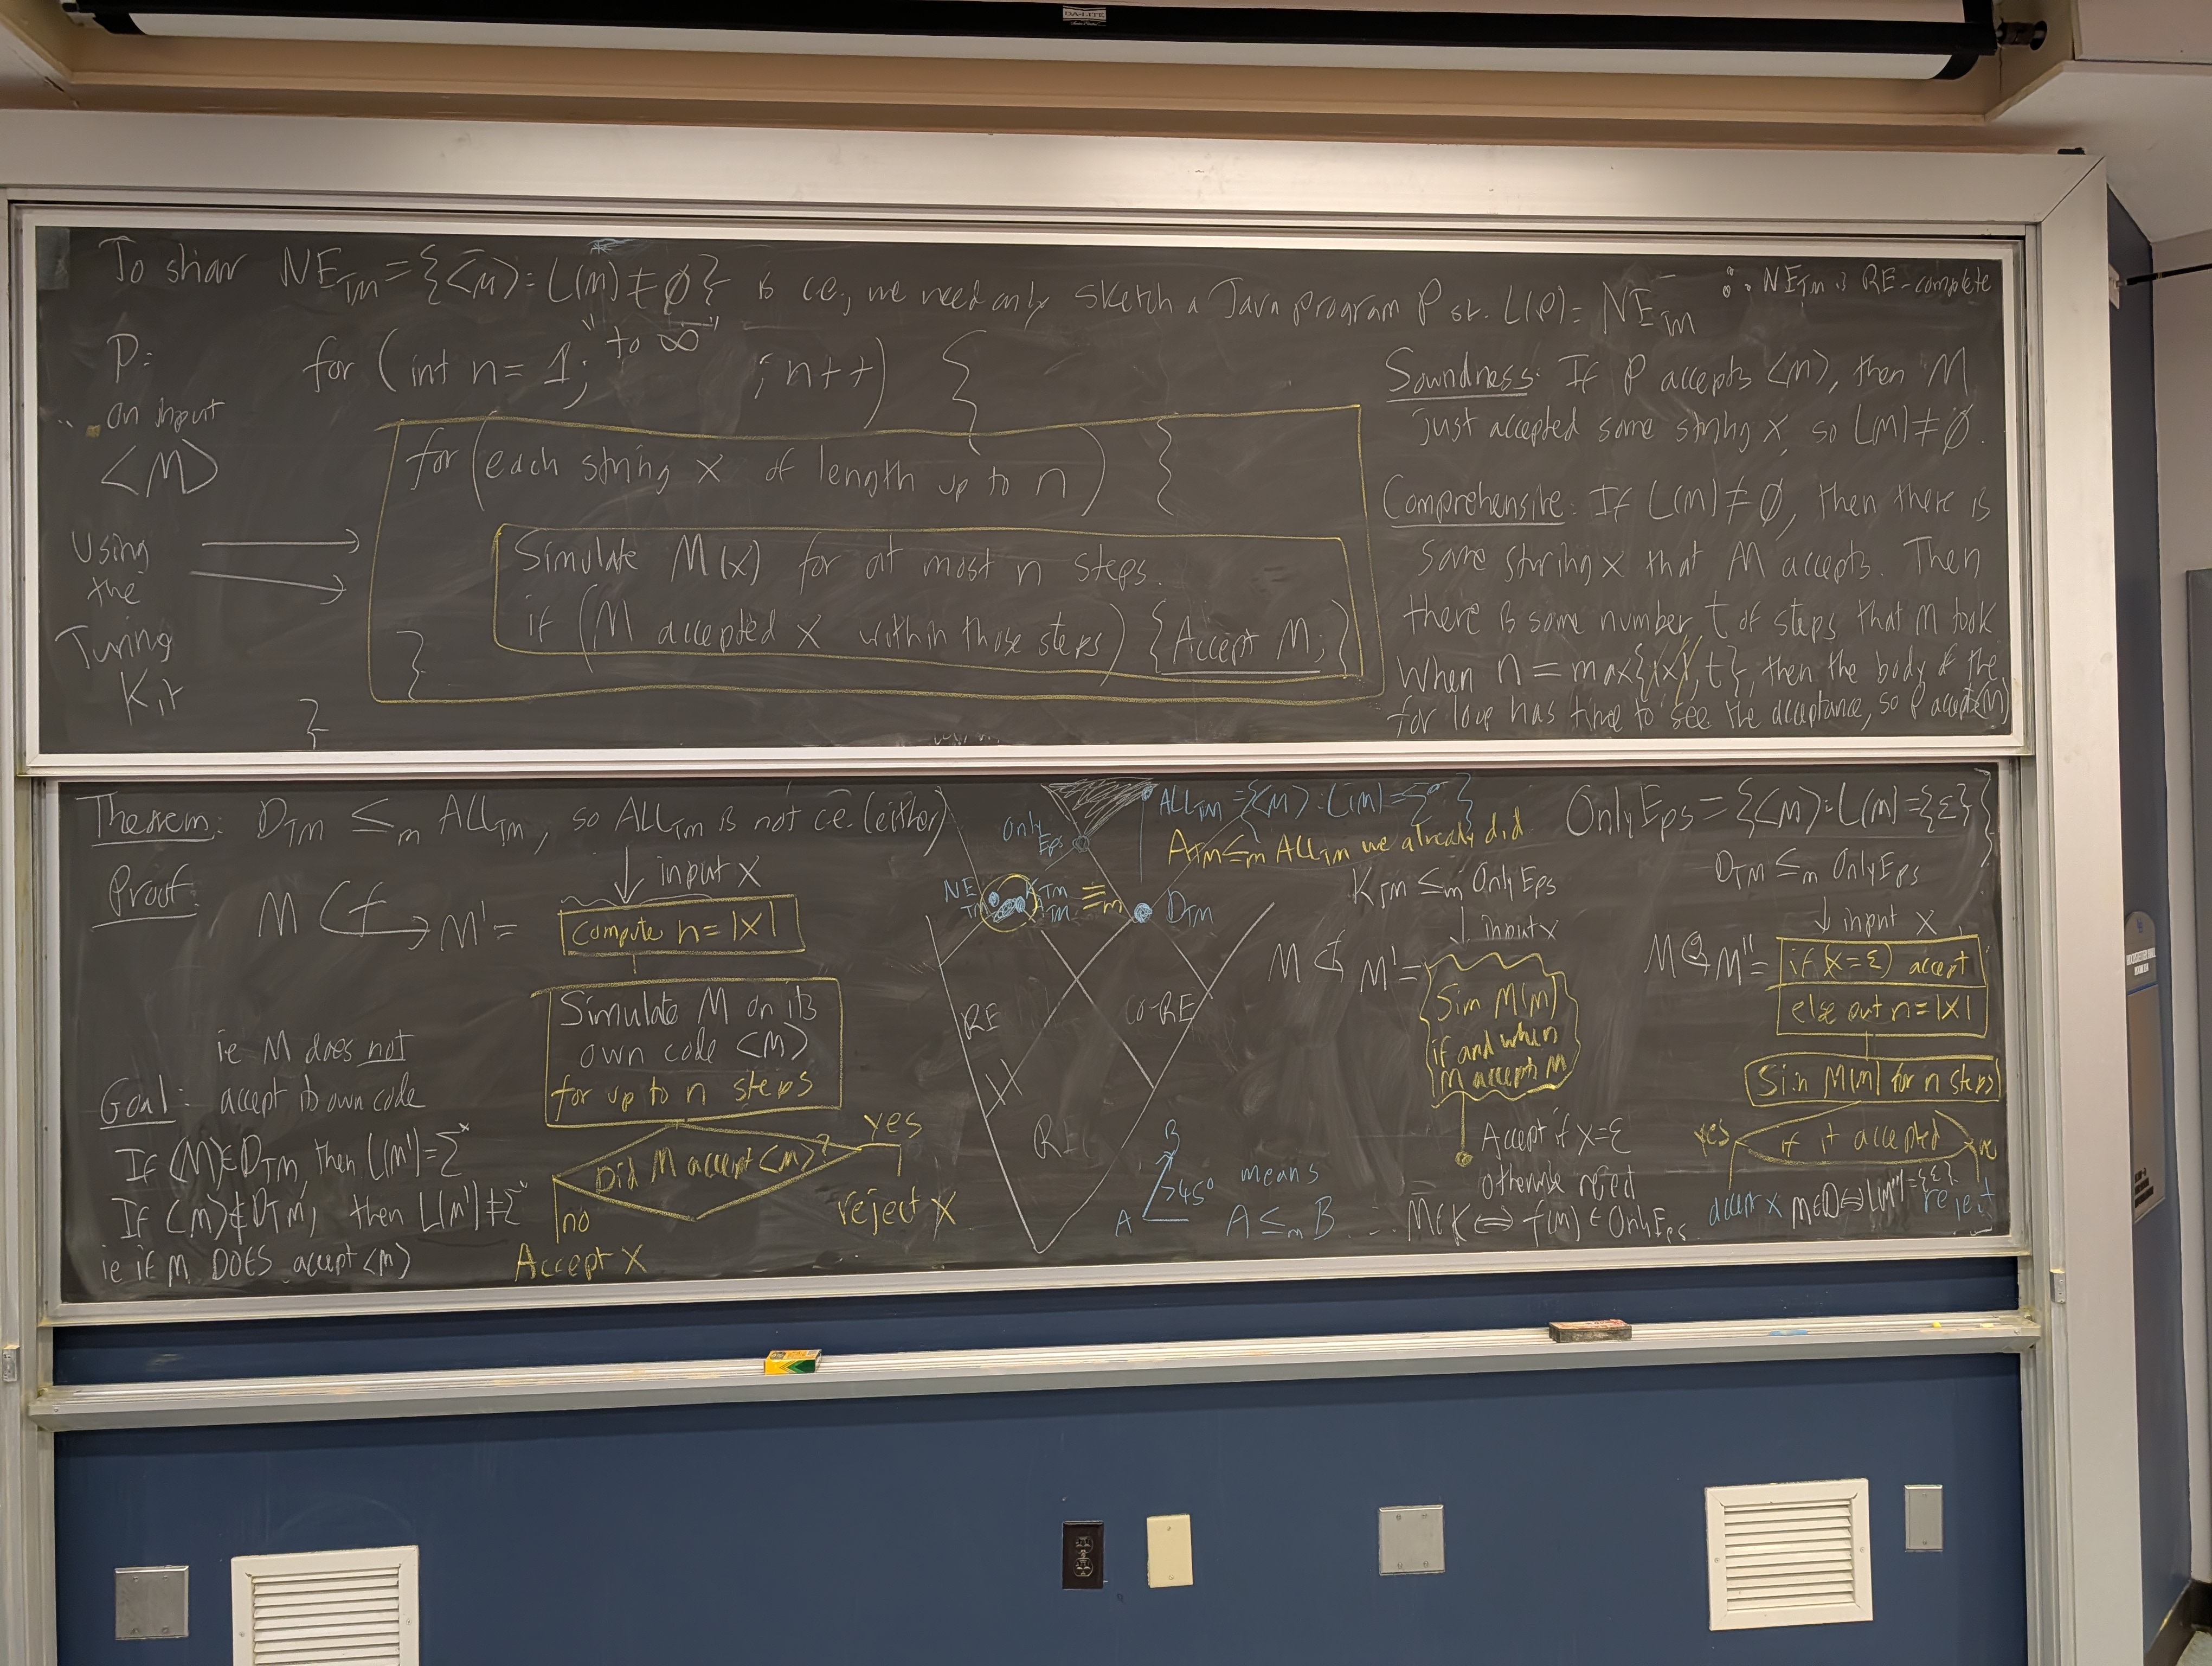 DA-LITE
To show NE_TM = {<M>: L(M) ≠ ∅} is c.e., we need only sketch a Java program P st. L(P) = NE_TM
∴ NE_TM is RE-complete
P:
on input
<M>
Using
the
Turing
Kit
for (int n = 1; "to ∞" ; n++) {
for (each string x of length up to n) {
Simulate M(x) for at most n steps.
if (M accepted x within those steps) {Accept M;}
}
}
Soundness: If P accepts <M>, then M
just accepted some string x, so L(M) ≠ ∅.
Comprehensive: If L(M) ≠ ∅, then there is
some string x that M accepts. Then
there is some number t of steps that M took
When n = max{|x|, t}, then the body of the
for loop has time to see the acceptance, so P accepts <M>
Theorem: D_TM ≤_m ALL_TM, so ALL_TM is not c.e. (either)
Proof:
M ↪f M' =
↓ input x
Compute n = |x|
Simulate M on its
own code <M>
for up to n steps
Did M accept <M>?
yes
reject x
no
Accept x
ie M does not
Goal: accept its own code
If <M> ∈ D_TM, then L(M') = Σ*
If <M> ∉ D_TM, then L(M') ≠ Σ*
ie if M DOES accept <M>
Only
Eps
ALL_TM = {<M>: L(M) = Σ*}
A_TM ≤_m ALL_TM we already did
NE
TM
K_TM
TM
≡_m
D_TM
RE
co-RE
REC
B
>45°
A
means
A ≤_m B
OnlyEps = {<M>: L(M) = {ε}}
K_TM ≤_m OnlyEps
↓ input x
M ↪ M' =
Sim M(M)
if and when
M accepts M
Accept if x = ε
otherwise reject
∴ M ∈ K ⟺ f(M) ∈ OnlyEps
D_TM ≤_m OnlyEps
↓ input x
M ↪g M'' =
if (x = ε) accept
else out n = |x|
Sim M(M) for n steps
yes
if it accepted
no
accept x
M ∈ D ⟺ L(M'') = {ε}
reject